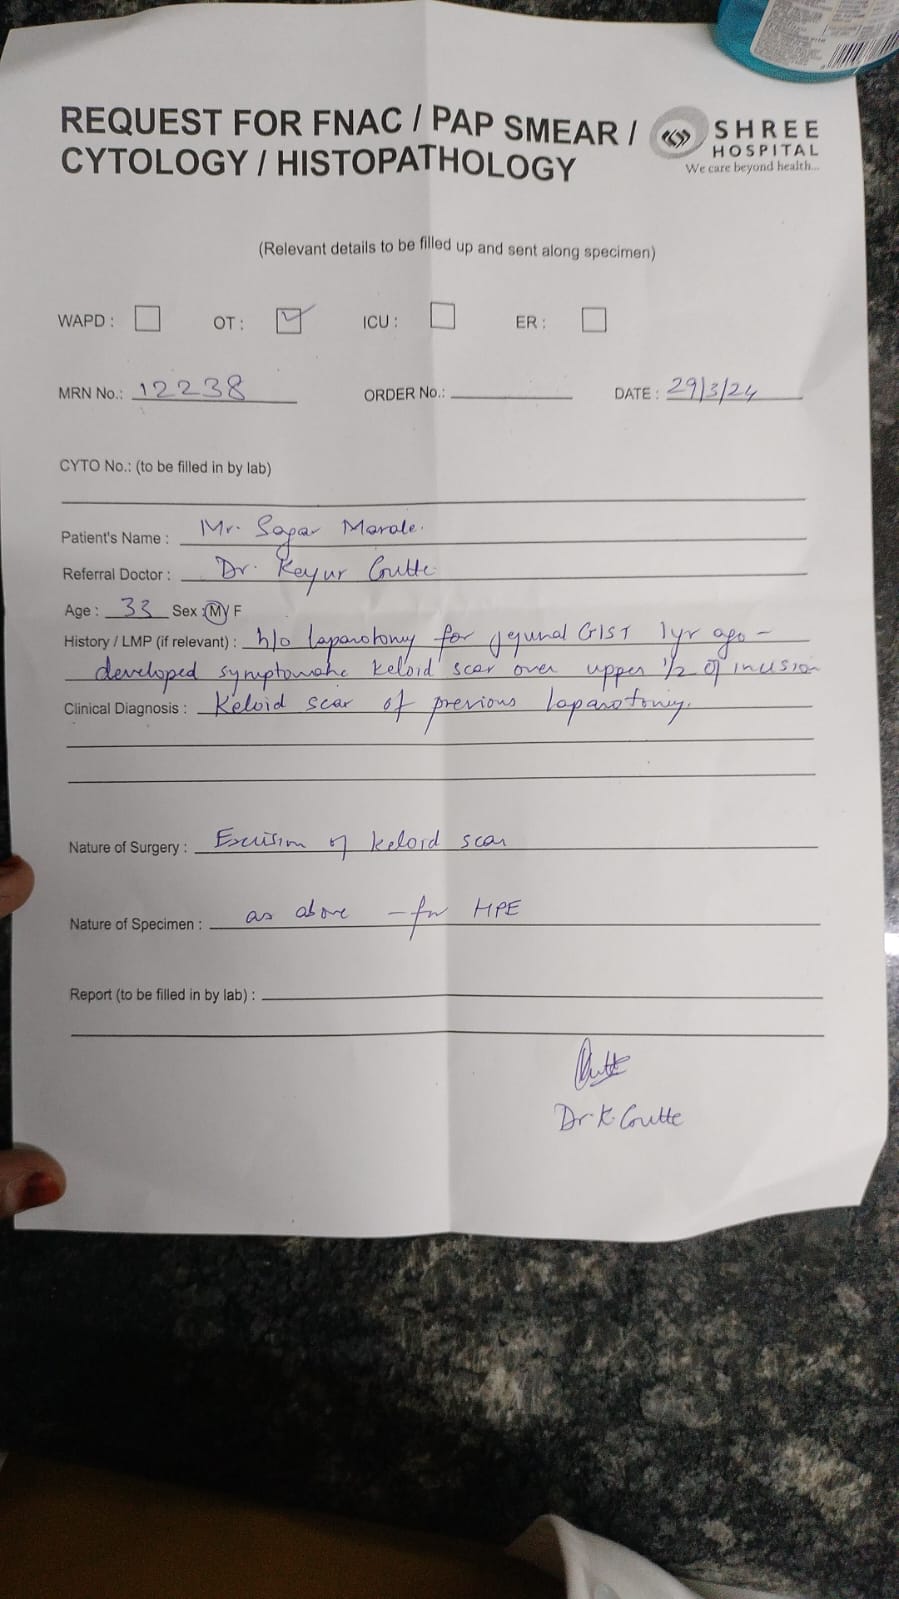 REQUEST FOR FNAC / PAP SMEAR /
CYTOLOGY / HISTOPATHOLOGY
SHREE
HOSPITAL
We care beyond health...
(Relevant details to be filled up and sent along specimen)
WAPD : OT : ICU : ER :
MRN No.: 12238 ORDER No.: DATE : 29/3/24
CYTO No.: (to be filled in by lab)
Patient's Name : Mr. Sagar Marale.
Referral Doctor : Dr. Keyur
Age : 33 Sex : M/F
History / LMP (if relevant) : h/o laparotomy for jejunal GIST 1yr ago -
developed symptomatic keloid scar over upper 1/2 of incision
Clinical Diagnosis : Keloid scar of previous laparotomy.
Nature of Surgery : Excision of keloid scar
Nature of Specimen : as above - for HPE
Report (to be filled in by lab) :
Dr. K.